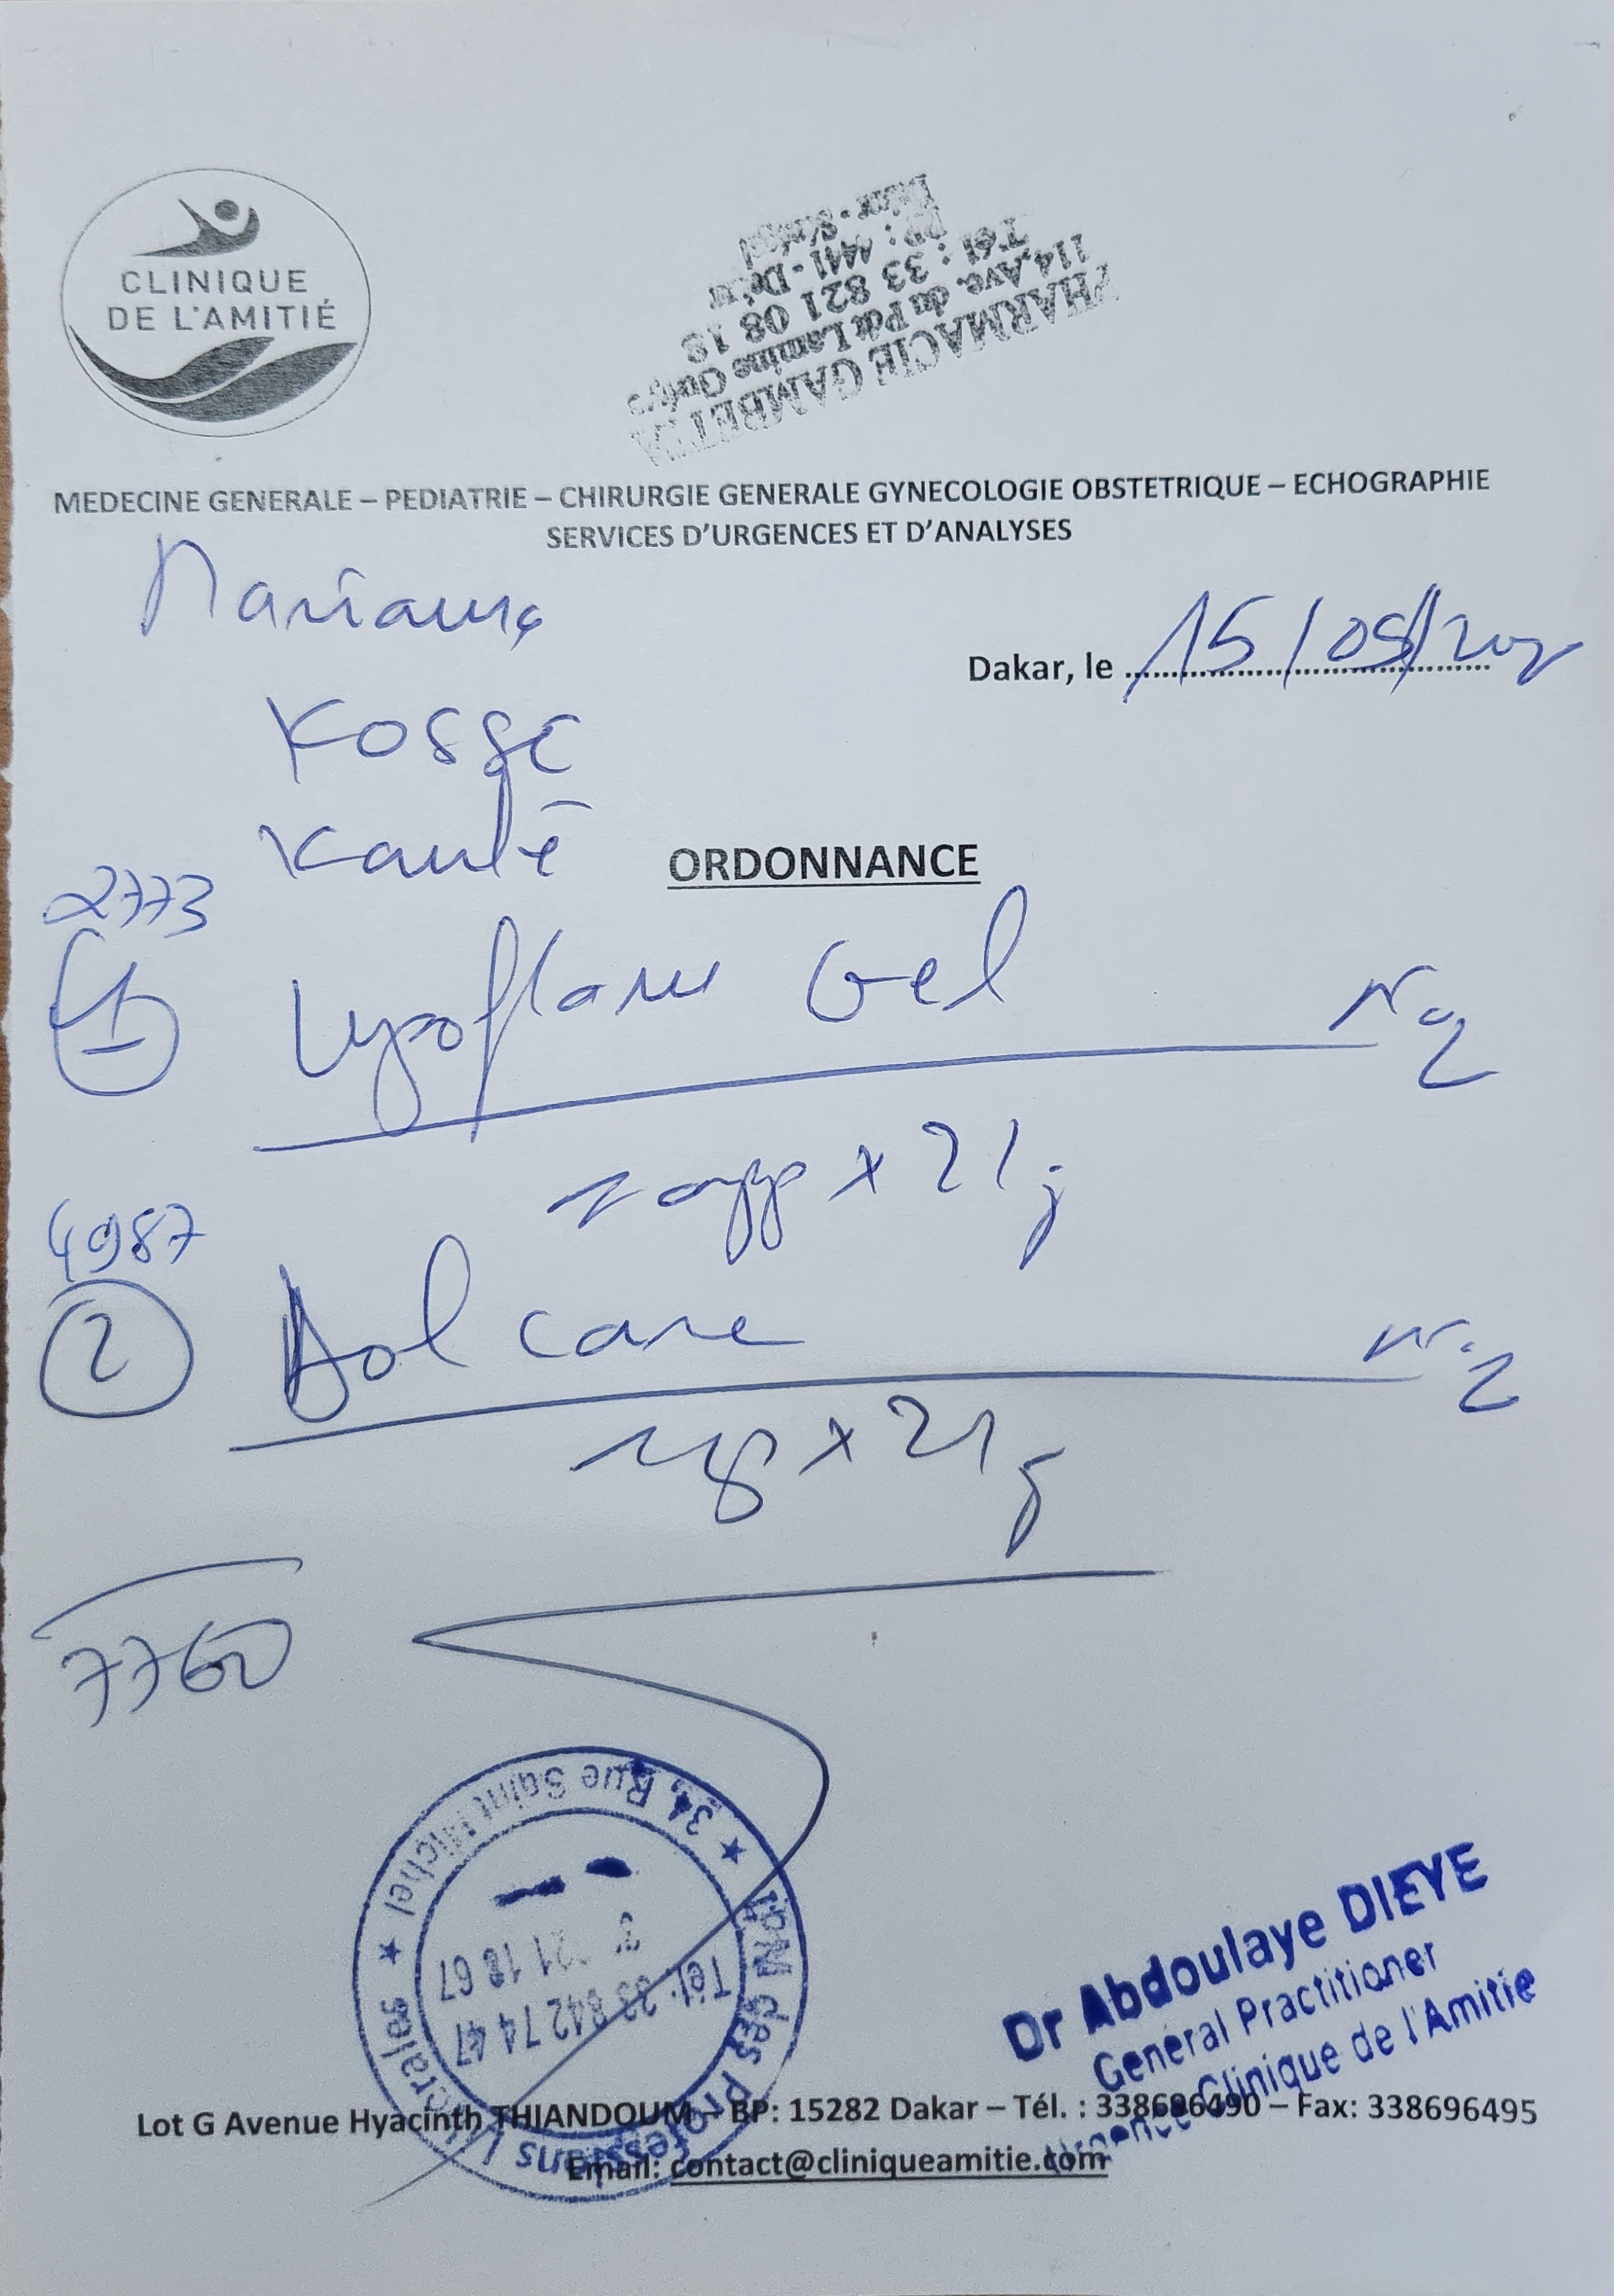 CLINIQUE
DE L'AMITIÉ
PHARMACIE GAMBETTA
114, Ave. du Pdt Lamine Guèye
Tél : 33 821 08 18
BP : 4441 - Dakar
Dakar - Sénégal
MEDECINE GENERALE – PEDIATRIE – CHIRURGIE GENERALE GYNECOLOGIE OBSTETRIQUE – ECHOGRAPHIE
SERVICES D'URGENCES ET D'ANALYSES
Mariama
Dakar, le 15/05/
Kosse
Kanté
ORDONNANCE
2773
1 Gel N° 2
x 21j
4987
2 Dol care N° 2
x 21j
7760
★ 34, Rue Saint Michel ★
des Professions Liberales
Tél: 33 842 74 47
21 18 67
Dr Abdoulaye DIEYE
General Practitioner
Urgence Clinique de l'Amitie
Lot G Avenue Hyacinth THIANDOUM – BP: 15282 Dakar – Tél. : 338696490 – Fax: 338696495
Email: contact@cliniqueamitie.com